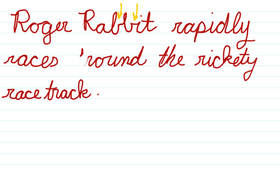 Roger Rabbit rapidly
races 'round the rickety
race track.